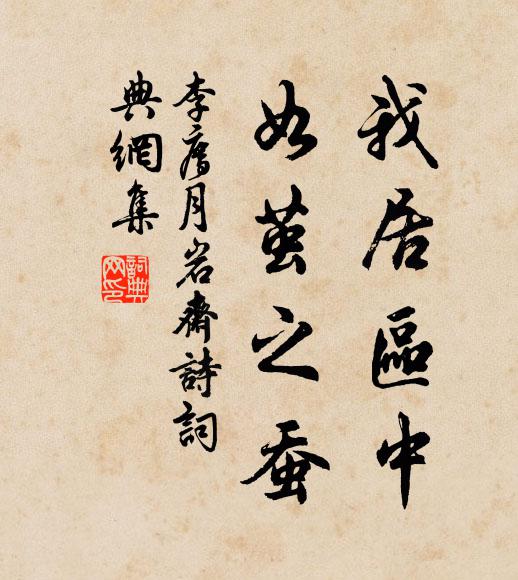 我居區中
如茧之蚕
李廌月岩齋詩詞
典網集
詞典網印